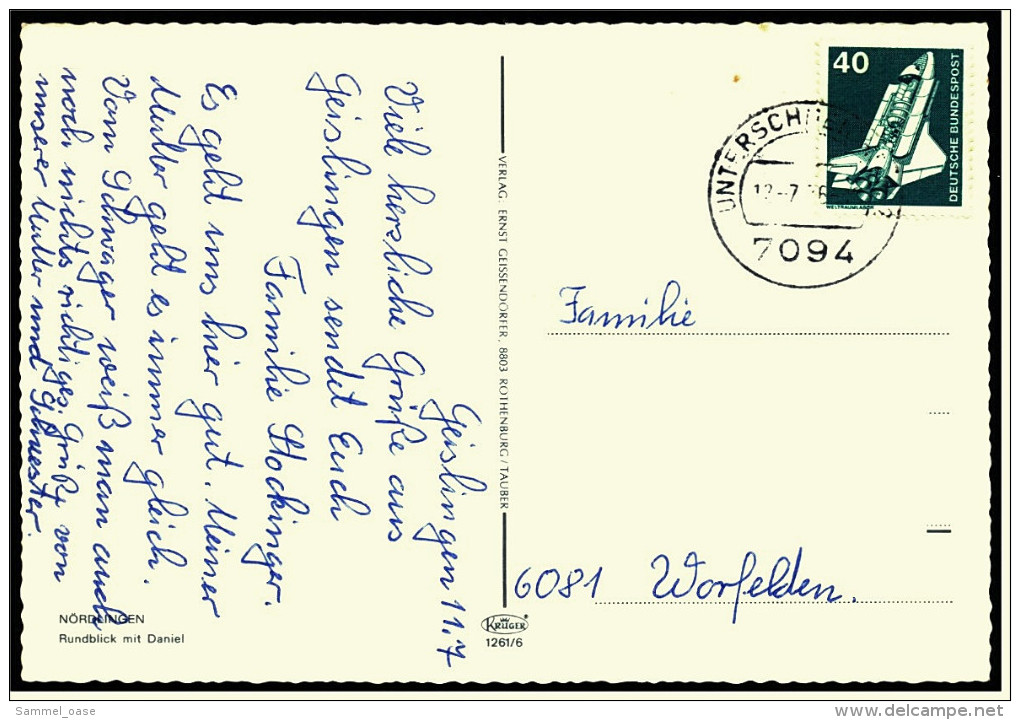 Geislingen 11.7
Viele herzliche Grüße aus
Geislingen sendet Euch
Familie Stockinger.
Es geht uns hier gut. Meiner
Mutter geht es immer gleich.
Vom Schwager weiß man auch
noch nichts richtiges. Grüße von
unserer Mutter und Schwester.
NÖRDLINGEN
Rundblick mit Daniel
VERLAG ERNST GEISSENDÖRFER, 8803 ROTHENBURG/TAUBER
KRÜGER
1261/6
40
DEUTSCHE BUNDESPOST
WELTRAUMLABOR
7094
Familie
6081 Worfelden.
Sammel_oase
www.delcampe.net